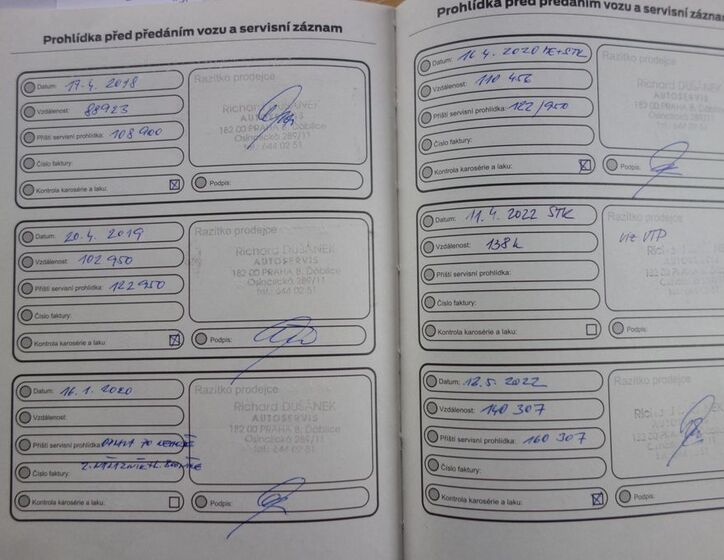 Prohlídka před předáním vozu a servisní záznam
Datum: 17.4. 2018
Vzdálenost: 88923
Příští servisní prohlídka: 108 900
Číslo faktury:
Kontrola karosérie a laku: ☒
Razítko prodejce
Richard
AUTOSERVIS
182 00 PRAHA 8, Ďáblice
Osinalická 289/11
tel.: 644 02 51
Podpis:
Datum: 20.4. 2019
Vzdálenost: 102 950
Příští servisní prohlídka: 122 950
Číslo faktury:
Kontrola karosérie a laku: ☒
Razítko prodejce
Richard DUŠÁNEK
AUTOSERVIS
182 00 PRAHA 8, Ďáblice
Osinalická 289/11
tel.: 644 02 51
Podpis:
Datum: 16.1. 2020
Vzdálenost:
Příští servisní prohlídka: PO
Číslo faktury:
Kontrola karosérie a laku: ☐
Razítko prodejce
Richard DUŠÁNEK
AUTOSERVIS
182 00 PRAHA 8, Ďáblice
Osinalická 289/11
tel.: 644 02 51
Podpis:
Prohlídka před předáním vozu a servisní zázna
Datum: 16.4. 2020 ME+STK
Vzdálenost: 110 456
Příští servisní prohlídka: 122/950
Číslo faktury:
Kontrola karosérie a laku: ☒
Razítko prodejce
Richard DUŠÁNEK
AUTOSERVIS
182 00 PRAHA 8, Ďáblice
Osinalická 289/11
tel.: 644 02 51
Podpis:
Datum: 11.4. 2022 STK
Vzdálenost: 138k
Příští servisní prohlídka:
Číslo faktury:
Kontrola karosérie a laku: ☐
Razítko prodejce
viz VTP
Podpis:
Datum: 12.5. 2022
Vzdálenost: 140 307
Příští servisní prohlídka: 160 307
Číslo faktury:
Kontrola karosérie a laku: ☒
Razítko prodejce
Podpis: